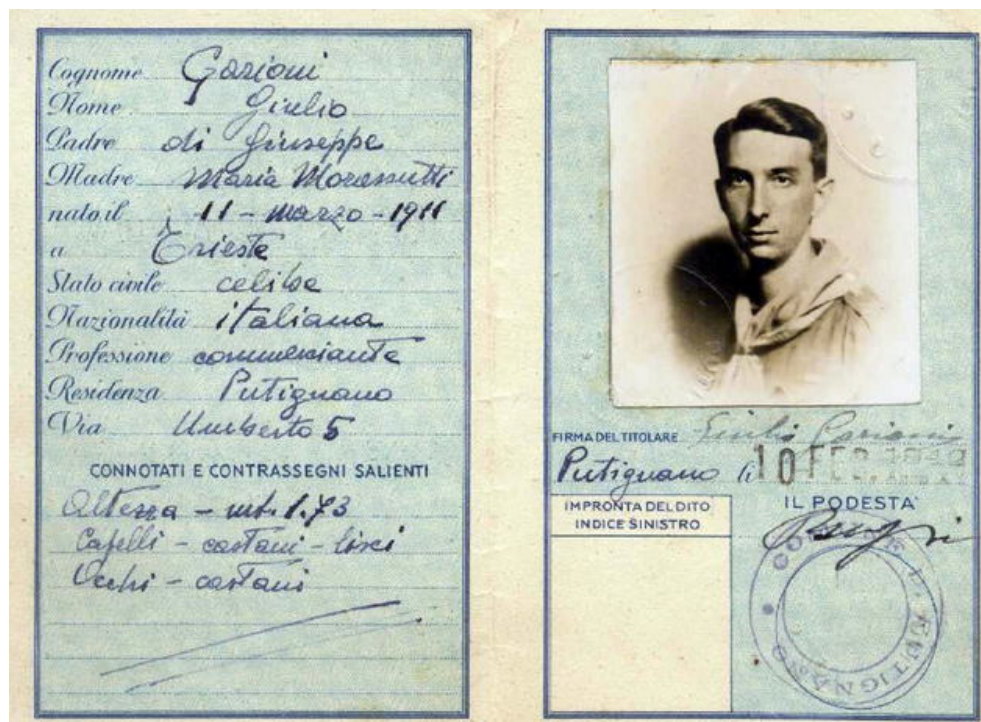 Cognome Garioni
Nome Giulio
Padre di Giuseppe
Madre Maria Morassutti
nato il 11 - marzo - 1911
a Trieste
Stato civile celibe
Nazionalità italiana
Professione commerciante
Residenza Putignano
Via Umberto 5
CONNOTATI E CONTRASSEGNI SALIENTI
Altezza - mt. 1.73
Capelli - castani - lisci
Occhi - castani
FIRMA DEL TITOLARE Giulio Garioni
Putignano li 10 FEB 1942
IMPRONTA DEL DITO
INDICE SINISTRO
IL PODESTA'
COMUNE DI PUTIGNANO